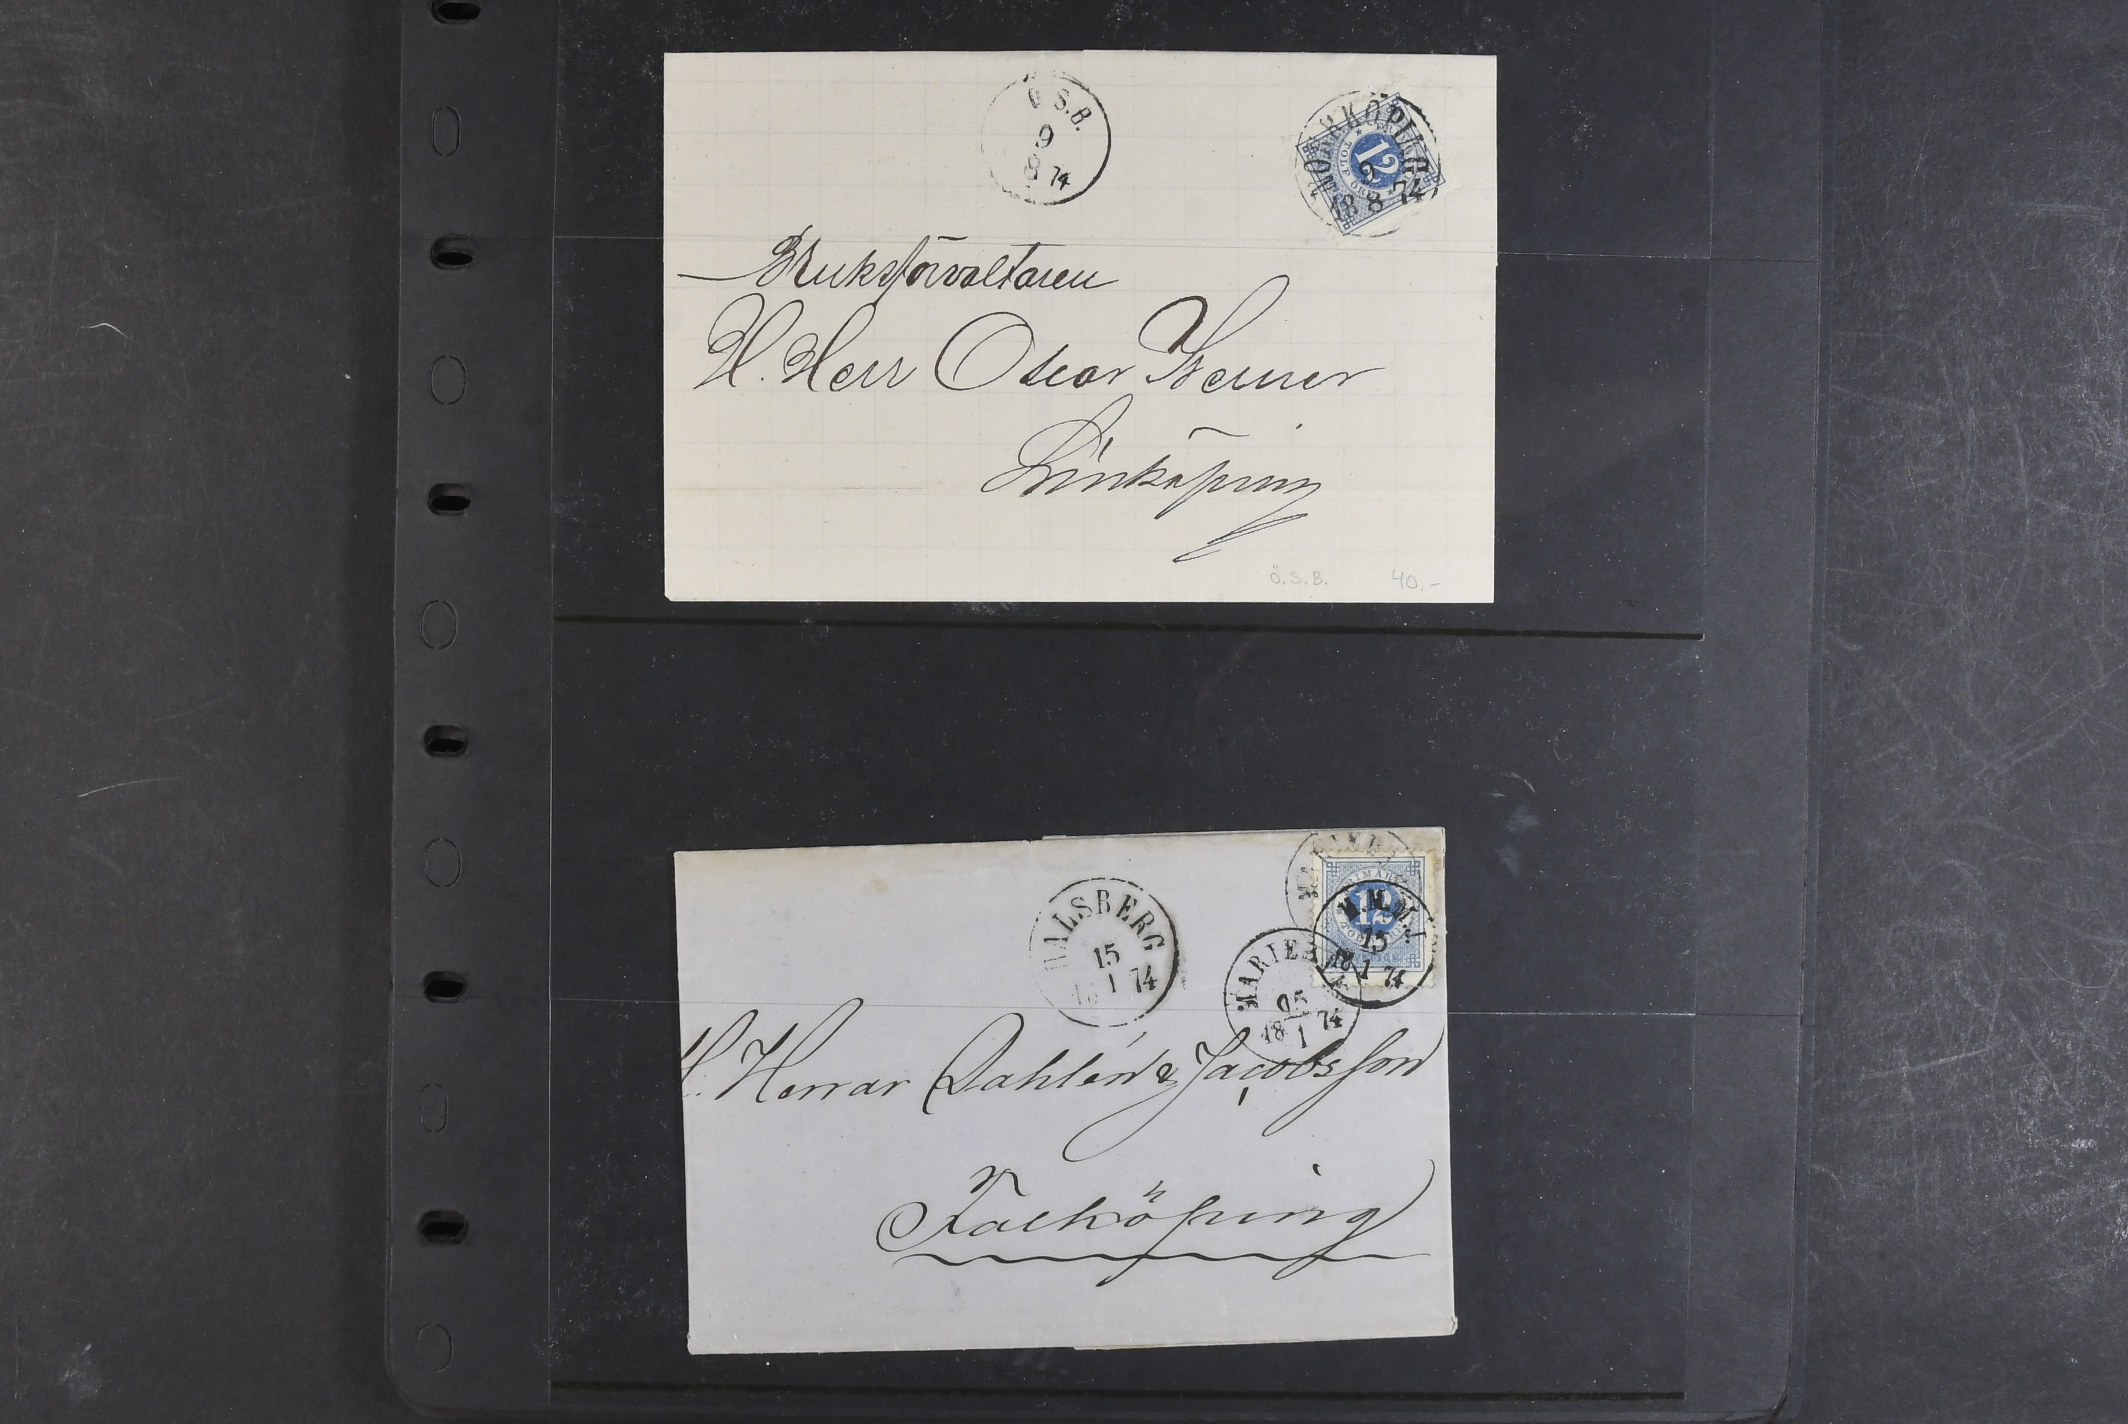 S.B.
9
8 74
NORRKÖPING
9
18 8 74
12
Bruksförvaltaren
H. Herr Oscar
Linköping
Ö.S.B. 40.-
HALSBERG
15
1 74
12
15
18 1 74
MARIE
18 1 74
H. Herrar Dahlén & Jacobsson
Falköping